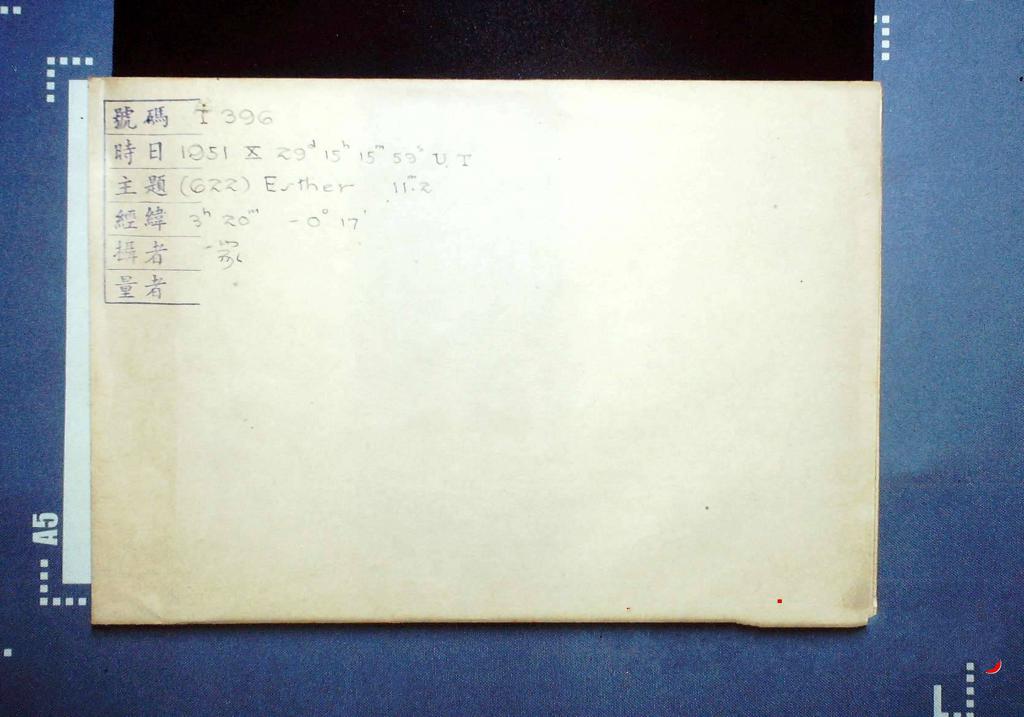 號碼 I 396
時日 1951 X 29d 15h 15m 59s U.T
主題 (622) Esther 11m.2
經緯 3h 20m -0° 17'
攝者
量者
A5